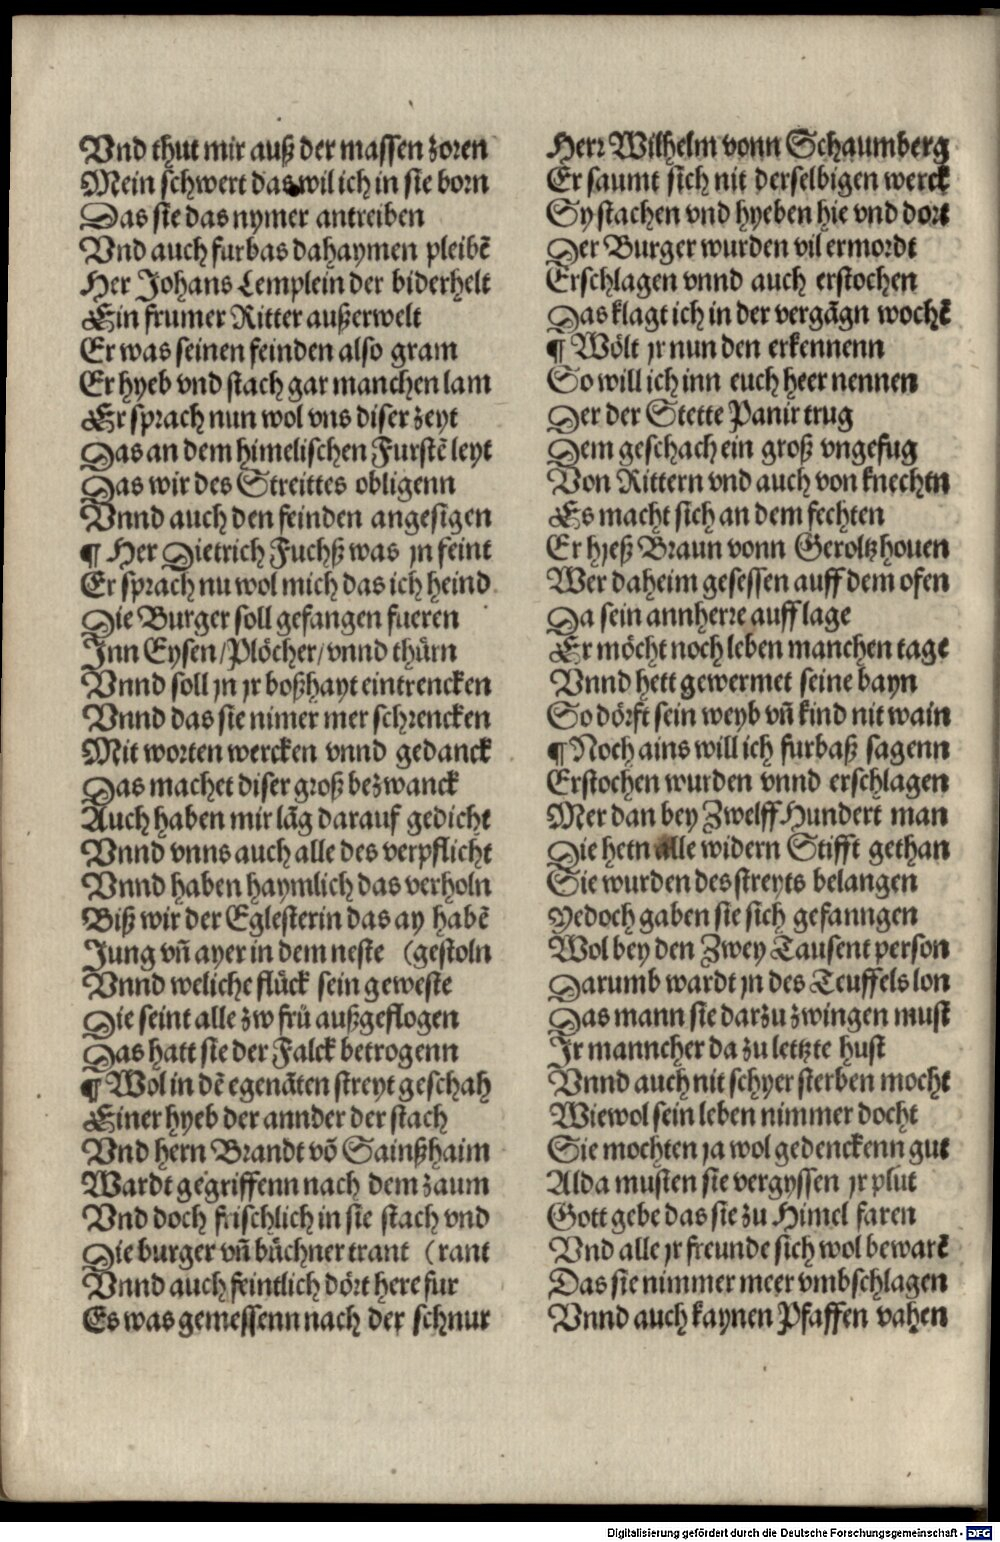 Vnd thut mir auß der massen zoren
Mein schwert das wil ich in sie born
Das sie das nymer antreiben
Vnd auch furbas dahaymen pleibẽ
Her Johans Lemplein der biderhelt
Ein frumer Ritter außerwelt
Er was seinen feinden also gram
Er hyeb vnd stach gar manchen lam
Er sprach nun wol vns diser zeyt
Das an dem himelischen Furstẽ leyt
Das wir des Streittes obligenn
Vnnd auch den feinden angesigen
¶ Her Dietrich Fuchß was jn feint
Er sprach nu wol mich das ich heind
Die Burger soll gefangen fueren
Jnn Eysen/Plöcher/vnnd thürn
Vnnd soll jn jr boßhayt eintrencken
Vnnd das sie nimer mer schrencken
Mit worten wercken vnnd gedanck
Das machet diser groß bezwanck
Auch haben mir lãg darauf gedicht
Vnnd vnns auch alle des verpflicht
Vnnd haben haymlich das verholn
Biß wir der Eglesterin das ay habẽ
Jung vñ ayer in dem neste (gestoln
Vnnd weliche flück sein geweste
Die seint alle zw frü außgeflogen
Das hatt sie der Falck betrogenn
¶ Wol in dẽ egenãten streyt geschah
Einer hyeb der annder der stach
Vnd hern Brandt võ Sainßhaim
Wardt gegriffenn nach dem zaum
Vnd doch frischlich in sie stach vnd
Die burger vñ büchner trant (rant
Vnnd auch feintlich dört here fur
Es was gemessenn nach der schnur
Herr Wilhelm vonn Schaumberg
Er saumt sich nit derselbigen werck
Sy stachen vnd hyeben hie vnd dort
Der Burger wurden vil ermordt
Erschlagen vnnd auch erstochen
Das klagt ich in der vergãgn wochẽ
¶ Wölt jr nun den erkennenn
So will ich inn euch heer nennen
Der der Stette Panir trug
Dem geschach ein groß vngefug
Von Rittern vnd auch von knechtn
Es macht sich an dem fechten
Er hjeß Braun vonn Geroltzhouen
Wer daheim gesessen auff dem ofen
Da sein annherre auff lage
Er möcht noch leben manchen tage
Vnnd hett gewermet seine bayn
So dörft sein weyb vñ kind nit wain
¶ Noch ains will ich furbaß sagenn
Erstochen wurden vnnd erschlagen
Mer dan bey Zwelff Hundert man
Die hetn alle widern Stifft gethan
Sie wurden des streyts belangen
Yedoch gaben sie sich gefanngen
Wol bey den Zwey Tausent person
Darumb wardt jn des Teuffels lon
Das mann sie darzu zwingen must
Jr manncher da zu letzte hust
Vnnd auch nit schyer sterben mocht
Wiewol sein leben nimmer docht
Sie mochten ja wol gedenckenn gut
Alda musten sie vergyssen jr plut
Gott gebe das sie zu Himel faren
Vnd alle jr freunde sich wol bewarẽ
Das sie nimmer meer vmbschlagen
Vnnd auch kaynen Pfaffen vahen
Digitalisierung gefördert durch die Deutsche Forschungsgemeinschaft - DFG